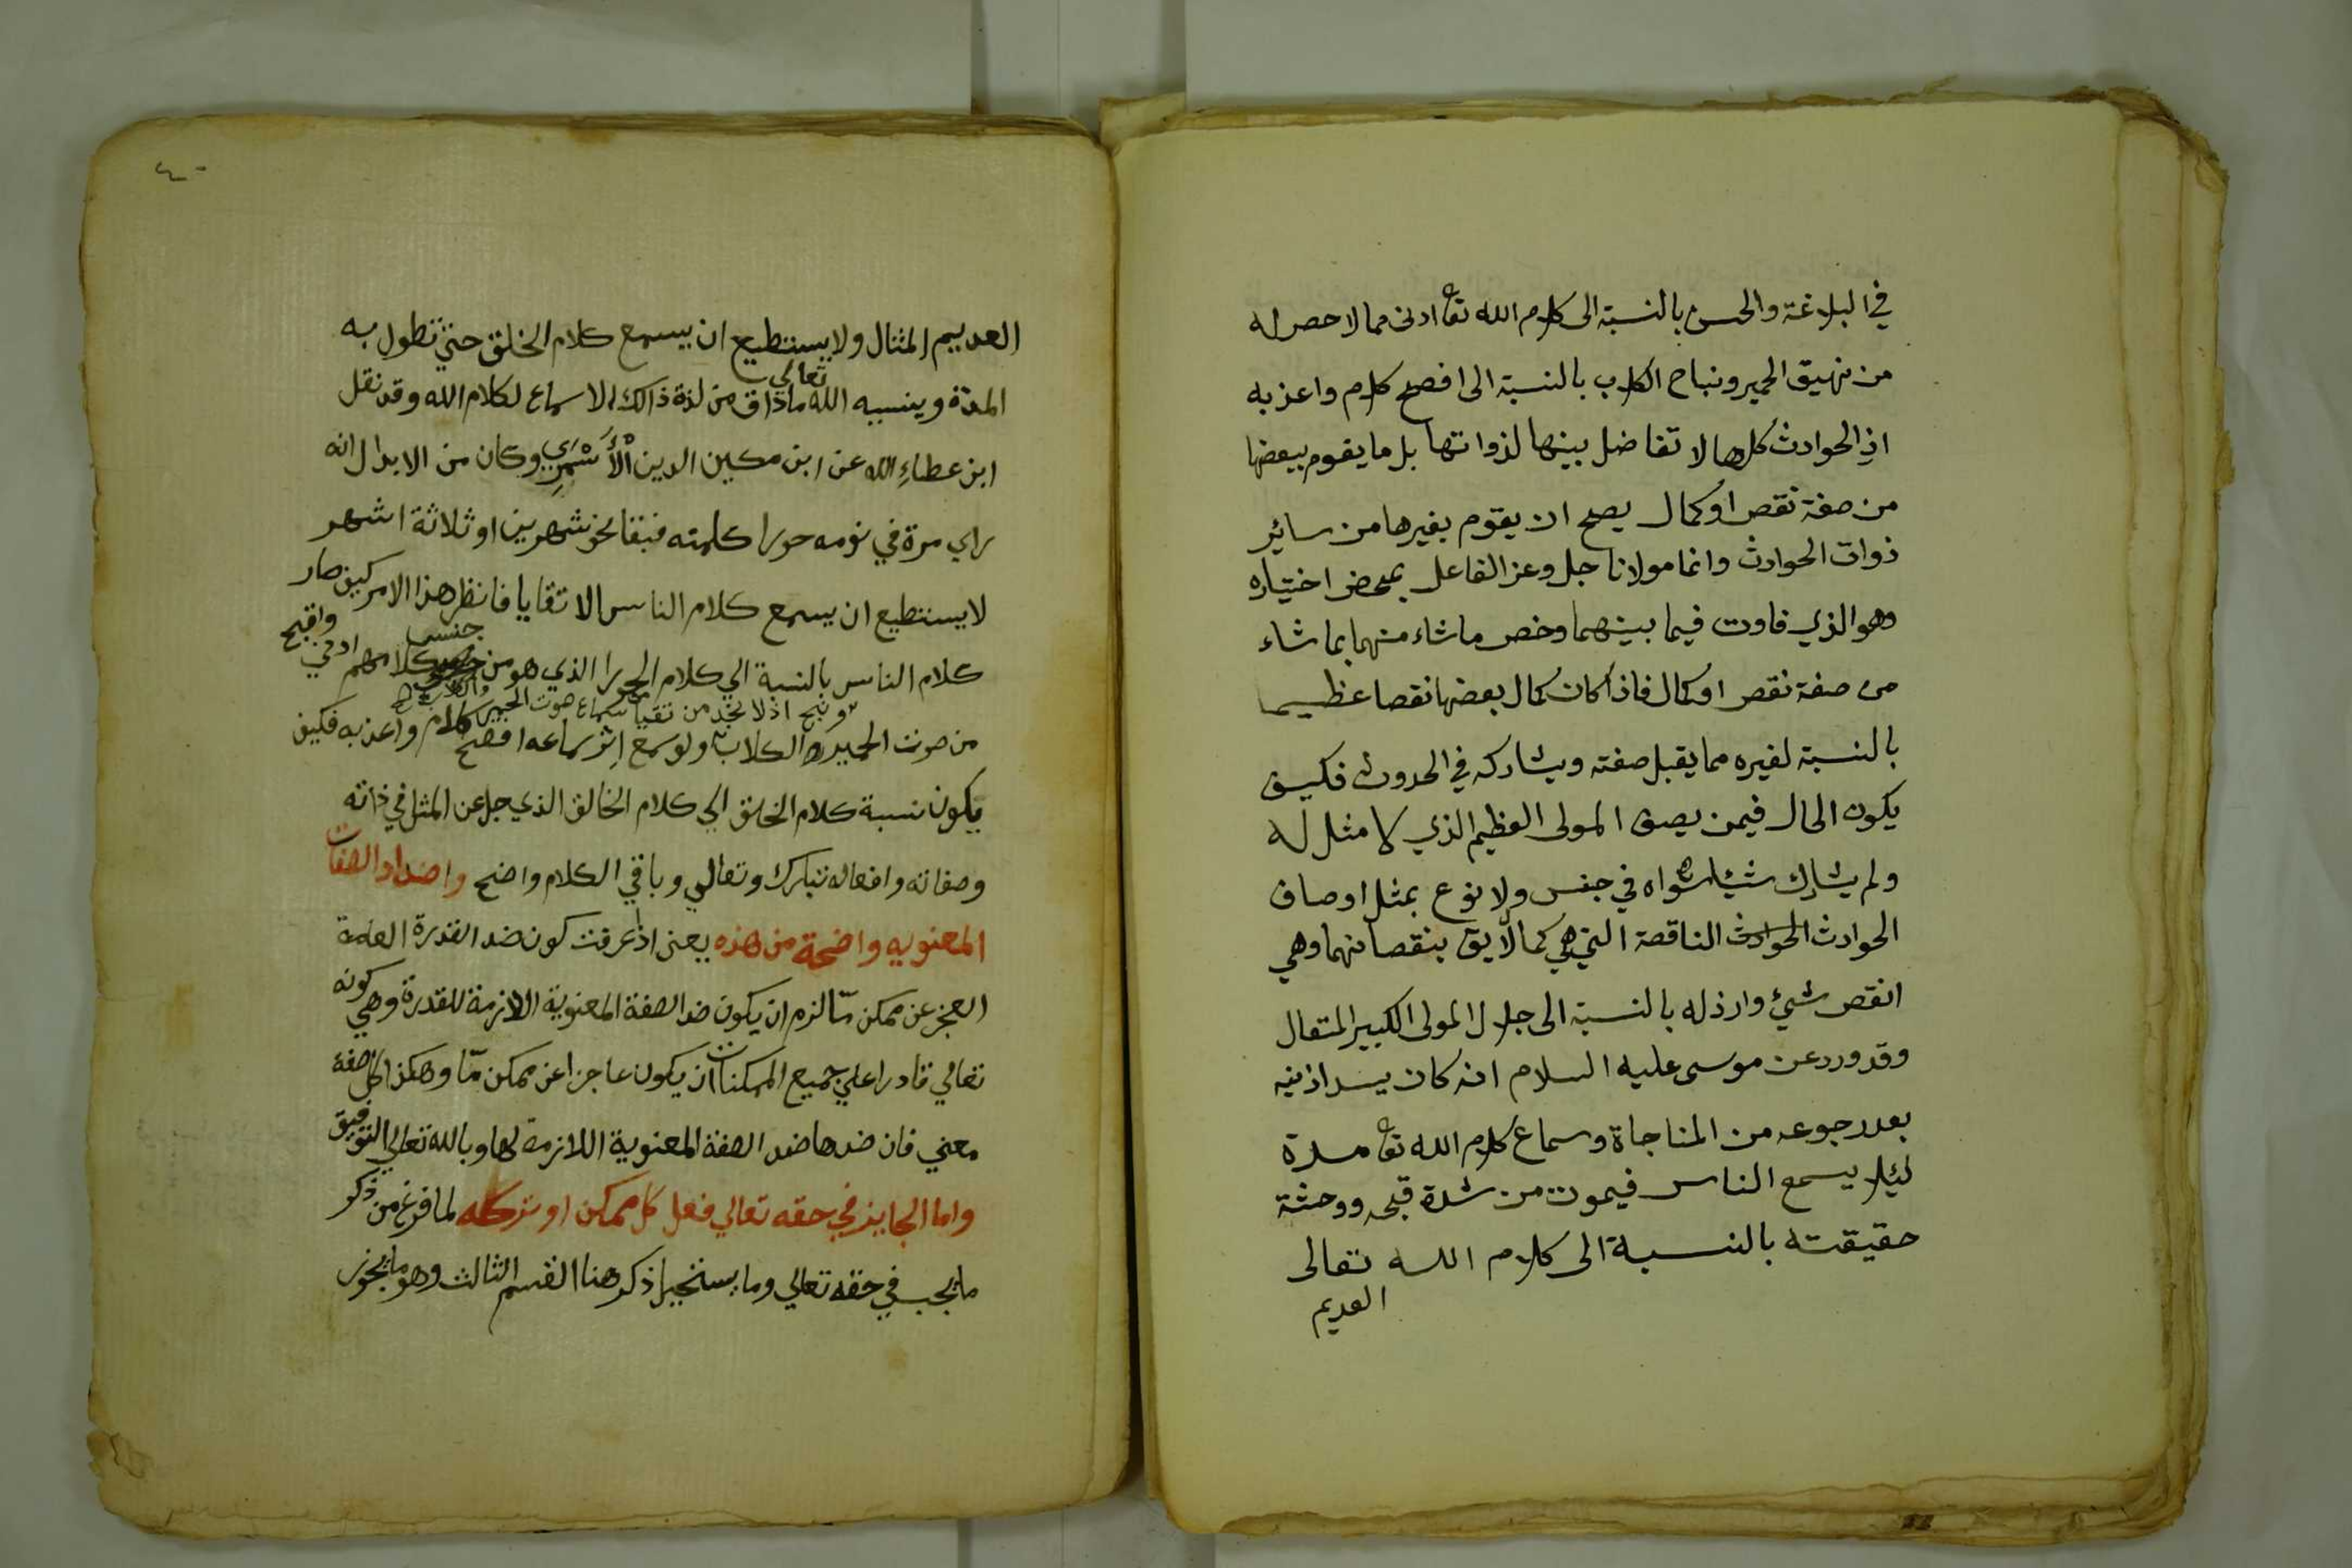 في البلاغة والحسن بالنسبة الى كلام الله تعا ادنى مما لا حصر له
من نهيق الحمير ونباح الكلاب بالنسبة الى افصح كلام واعذبه
اذ الحوادث كلها لا تفاضل بينها لذواتها بل ما يقوم ببعضها
من صفة نقص او كمال يصح ان يقوم بغيرها من ساير
ذوات الحوادث وانما مولانا جل وعز الفاعل بمحض اختياره
وهو الذي فاوت فيما بينهما وخص ما شاء منهما بما شاء
من صفة نقص او كمال فاذا كان كمال بعضها نقصا عظيما
بالنسبة لغيره مما يقبل صفته ويشاركه في الحدوث فكيف
يكون الحال فيمن يصف المولى العظيم الذي لا مثل له
ولم يشارك شيئا سواه في جنس ولا نوع بمثل اوصاف
الحوادث الحوادث الناقصة التي هي كمالا يق بنقصانهما وهي
انقص شيئ وارذله بالنسبة الى جلال المولى الكبير المتعال
وقد ورد عن موسى عليه السلام انه كان يسد اذنيه
بعد رجوعه من المناجاة وسماع كلام الله تعا مدة
ليلا يسمع الناس فيموت من شدة قبحه ووحشة
حقيقته بالنسبة الى كلام الله تعالى
العديم
٤٠
العديم المثال ولا يستطيع ان يسمع كلام الخلق حتي تطول به
المدة وينسيه الله تعالي ما ذاق من لذة ذالك الاسماع لكلام الله وقد نقل
ابن عطاء الله عن ابن مكين الدين الأسمري وكان من الابدال انه
راي مرة في نومه حورا كلمته فبقا نحو شهرين او ثلاثة اشهر
لا يستطيع ان يسمع كلام الناس الا تقايا فانظر هذا الامر كيف صار
كلام الناس بالنسبة الي كلام الحورا الذي هو من جنس كلامهم ادني واقبح
من صوت الحمير والكلاب ولو سمع اثر سماعه افصح كلام واعذبه فكيف
وقبح اذ لا نجد من تقيا من سماع صوت الحمير والكلاب
يكون نسبة كلام الخلق الي كلام الخالق الذي جل عن المثل في ذاته
وصفاته وافعاله تبارك وتعالي وباقي الكلام واضح واضداد الصفات
المعنويه واضحة من هذه يعني اذا عرفت كون ضد القدرة العامة
العجز عن ممكن مّا لزم ان يكون ضد الصفة المعنوية اللازمة للقدرة وهي كونه
تعالي قادرا علي جميع الممكنات ان يكون عاجزا عن ممكن مّا وهكذا كل صفة
معني فان ضدها ضد الصفة المعنوية اللازمة لها وبالله تعالي التوفيق
واما الجايز في حقه تعالي فعل كل ممكن او تركه لما فرغ من ذكر
ما يجب في حقه تعالي وما يستحيل ذكر هنا القسم الثالث وهو ما يجوز